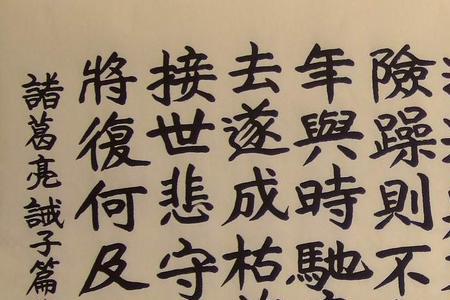 險躁則不
年與時馳
去遂成枯
接世悲守
將復何及
諸葛亮誡子篇